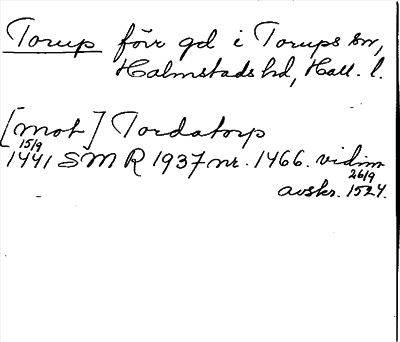 Torup förr gd i Torups sn,
Halmstads hd, Hall. l.
[mot] Tordatorp
15/9
1441 SMR 1937 nr. 1466. vidim
26/9
avskr. 1524.